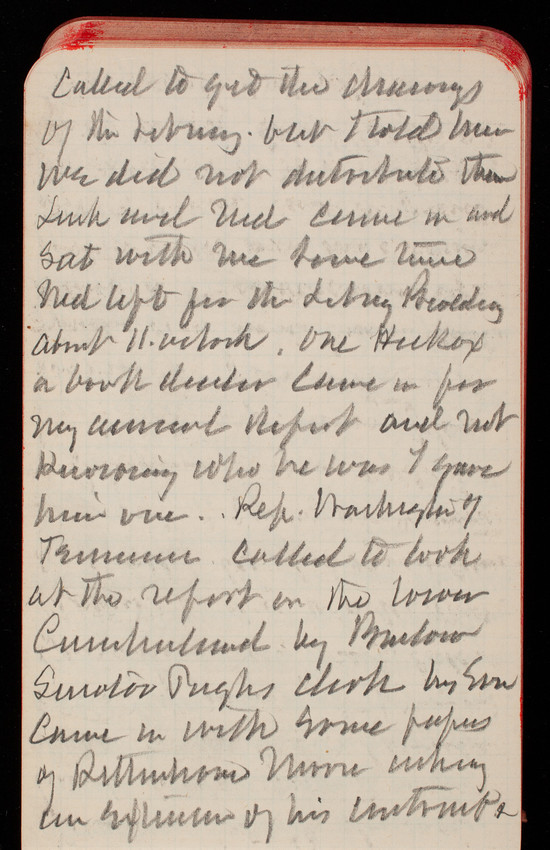 Called to get the drawings
of the Library. but I told him
we did not distribute them
and Ned came in and
sat with me some time
Ned left for the Library Building
about 11.oclock. One Hickox
a book dealer came in for
my annual Report and not
Knowing who he was I gave
him one.. Rep. Washington of
Tennessee called to look
at the report on the lower
Cumberland by Barlow
Senator Pughs clerk his Son
Came in with some papers
of Rittenhouse Moore asking
an extension of his contract &